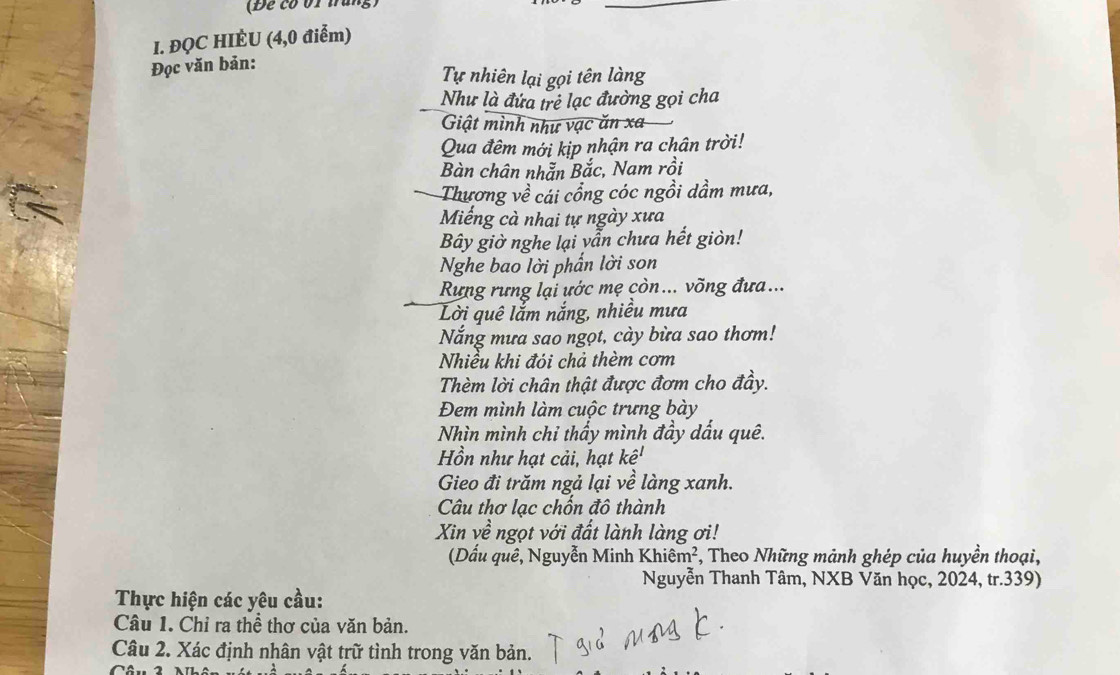 (Đề có 01 trang)
I. ĐỌC HIỂU (4,0 điểm)
Đọc văn bản:
Tự nhiên lại gọi tên làng
Như là đứa trẻ lạc đường gọi cha
Giật mình như vạc ăn xa
Qua đêm mới kịp nhận ra chân trời!
Bàn chân nhẵn Bắc, Nam rồi
Thương về cái cổng cóc ngồi dầm mưa,
Miếng cà nhai tự ngày xưa
Bây giờ nghe lại vẫn chưa hết giòn!
Nghe bao lời phấn lời son
Rưng rưng lại ước mẹ còn... võng đưa...
Lời quê lắm nắng, nhiều mưa
Nắng mưa sao ngọt, cày bừa sao thơm!
Nhiều khi đói chả thèm cơm
Thèm lời chân thật được đơm cho đầy.
Đem mình làm cuộc trưng bày
Nhìn mình chỉ thấy mình đầy dấu quê.
Hồn như hạt cải, hạt kê¹
Gieo đi trăm ngả lại về làng xanh.
Câu thơ lạc chốn đô thành
Xin về ngọt với đất lành làng ơi!
(Dấu quê, Nguyễn Minh Khiêm², Theo Những mảnh ghép của huyền thoại,
Nguyễn Thanh Tâm, NXB Văn học, 2024, tr.339)
Thực hiện các yêu cầu:
Câu 1. Chỉ ra thể thơ của văn bản.
Câu 2. Xác định nhân vật trữ tình trong văn bản.